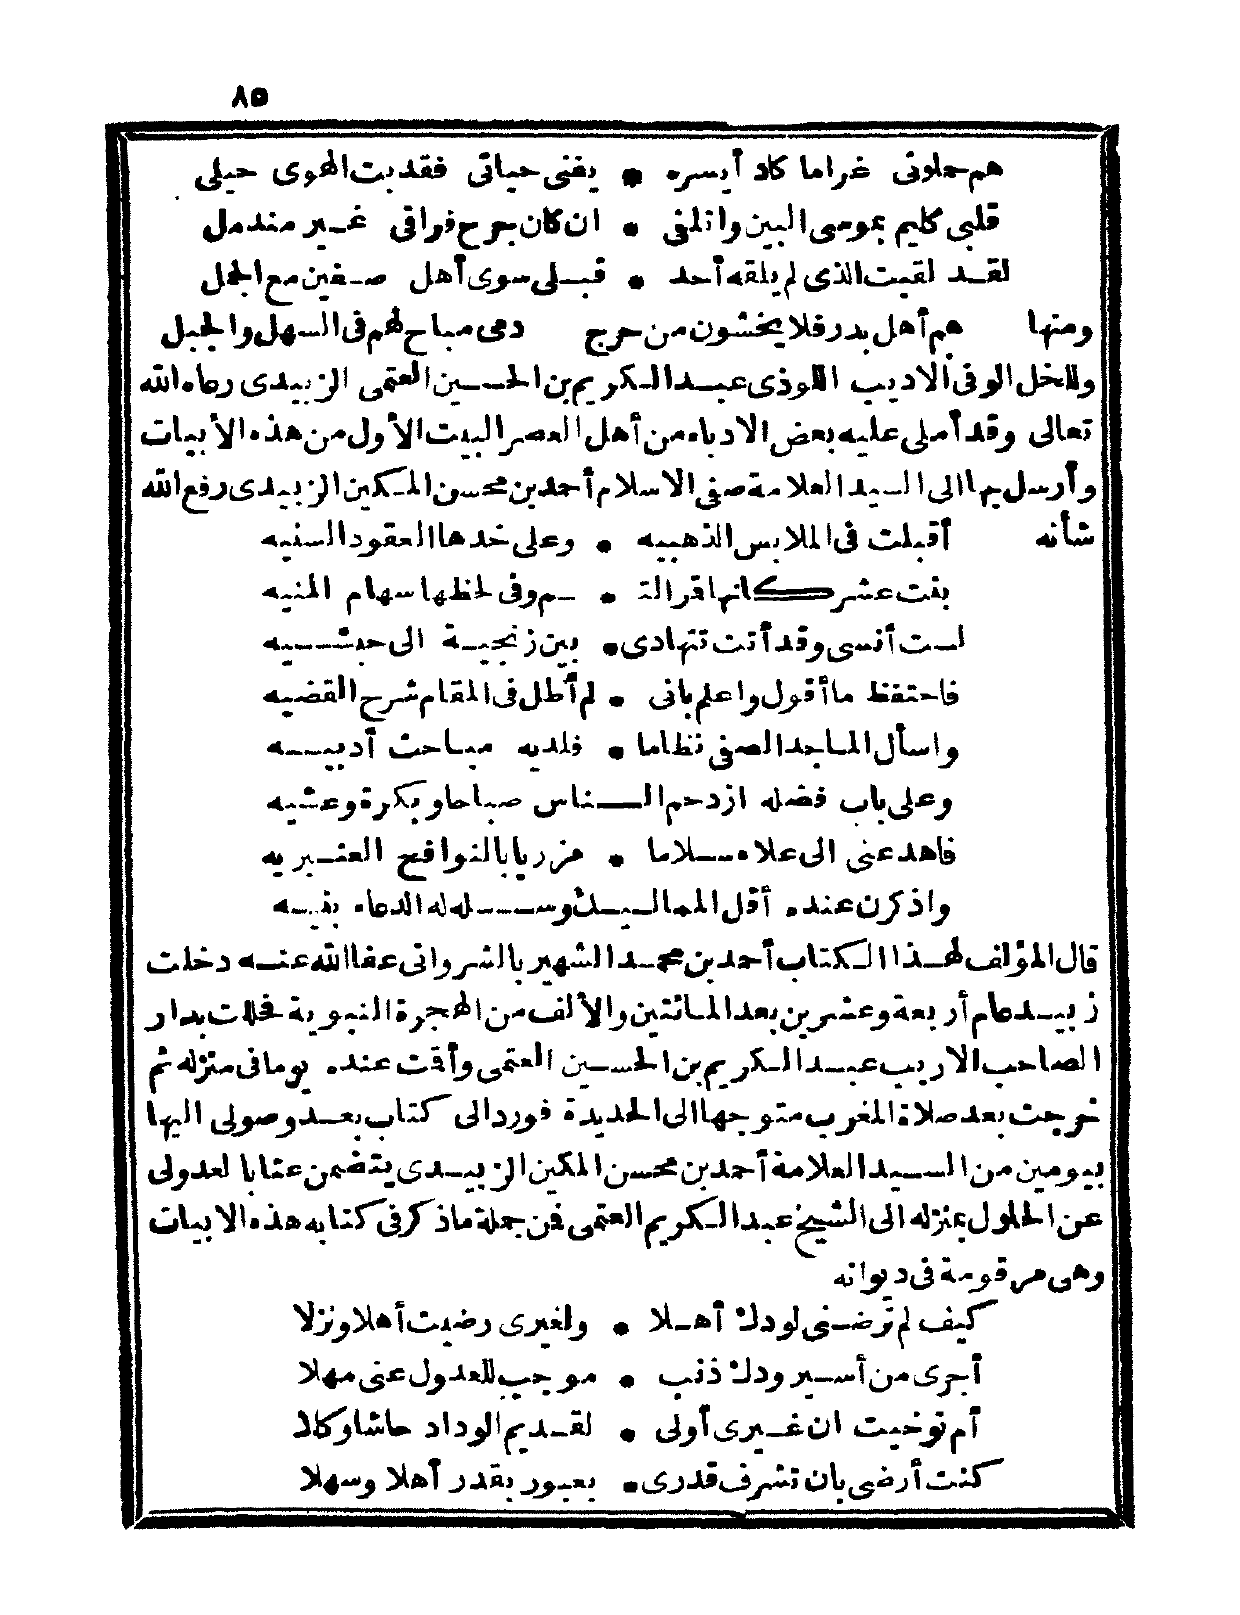 ٨٥
هم حملونى غراما كاد أيسره • يفنى حياتى فقد بت الهوى حيلى
قلبى كليم بموسى البين واتلفى • ان كان جرح فراقى غير مندمل
لقد لقيت الذى لم يلقه أحد • قبلى سوى أهل صفين مع الجمل
ومنها هم أهل بدر فلا يخشون من حرج دمى مباح لهم فى السهل والجبل
وللخل الوفى الاديب اللوذى عبد الكريم بن الحسين العتمى الزبيدى رعاه الله
تعالى وقد أملى عليه بعض الادباء من أهل العصر البيت الأول من هذه الأبيات
وأرسل بها الى السيد العلامة صفى الاسلام أحمد بن محسن المكين الزبيدى رفع الله
شأنه أقبلت فى الملابس الذهبيه • وعلى خدها العقود السنيه
بنت عشر كانها قر الت • ـم وفى لحظها سهام المنيه
لست أنسى وقد أتت تتهادى • بين زنجية الى حبشيه
فاحتفظ ما أقول واعلم بانى • لم أطل فى المقام شرح القضيه
واسأل الماجد الصفى نظاما • فلديه مباحث أدبيه
وعلى باب فضله ازدحم الناس صباحا وبكرة وعشيه
فاهد عنى الى علاه سلاما • مزريا بالنوافح العنبريه
واذكرن عنده أقل المماليك وسله له الدعاء بنيه
قال المؤلف لهذا الكتاب أحمد بن محمد الشهير بالشروانى عفا الله عنه دخلت
زبيد عام أربعة وعشرين بعد المائتين والألف من الهجرة النبوية فحللت بدار
الصاحب الاريب عبد الكريم بن الحسين العتمى وأقت عنده يوما فى منزله ثم
خرجت بعد صلاة المغرب متوجها الى الحديدة فورد الى كتاب بعد وصولى اليها
بيومين من السيد العلامة أحمد بن محسن المكين الزبيدى يتضمن عتابا لعدولى
عن الحلول بمنزله الى الشيخ عبد الكريم العتمى فمن جملة ماذكر فى كتابه هذه الابيات
وهى مرقومة فى ديوانه
كيف لم ترضنى لودك أهلا • ولغيرى رضيت أهلا ونزلا
أجرى من أسير ودك ذنب • موجب للعدول عنى مهلا
أم توخيت ان غيرى أولى • لقديم الوداد حاشا وكلا
كنت أرضى بان تشرف قدرى • بعبور بقدر أهلا وسهلا